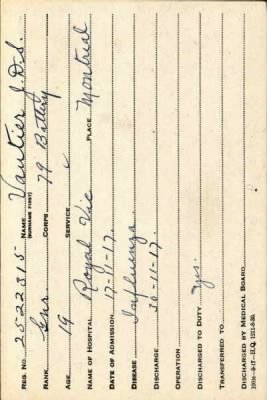 REG. NO. 2522315 NAME Vautier J.D.S.
(SURNAME FIRST)
RANK Gnr. CORPS 79 Battery
AGE 19 SERVICE
NAME OF HOSPITAL Royal Vic PLACE Montreal
DATE OF ADMISSION 17-11-17.
DISEASE Influenza
DISCHARGE 30-11-17.
OPERATION
DISCHARGED TO DUTY Yes.
TRANSFERRED TO
DISCHARGED BY MEDICAL BOARD